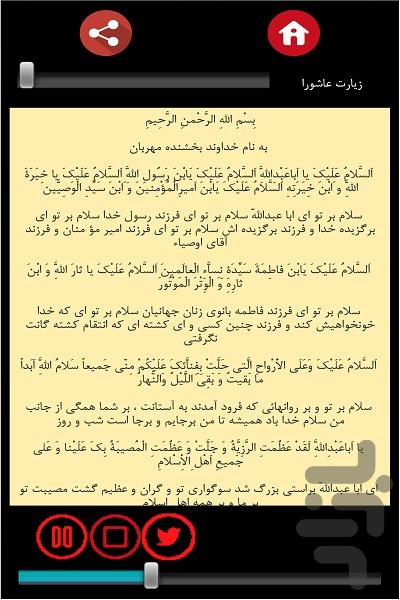 زیارت عاشورا
بِسْمِ اللهِ الرَّحْمنِ الرَّحِیمِ
به نام خداوند بخشنده مهربان
اَلسَّلامُ عَلَیْکَ یا اَباعَبْدِاللهِ اَلسَّلامُ عَلَیْکَ یَابْنَ رَسُولِ اللهِ اَلسَّلامُ عَلَیْکَ یا خِیَرَةَ
اللهِ وَ ابْنَ خِیَرَتِهِ اَلسَّلامُ عَلَیْکَ یَابْنَ اَمیرِالْمُؤْمِنینَ وَ ابْنَ سَیِّدِ الْوَصِیّینَ
سلام بر تو ای ابا عبداللّه سلام بر تو ای فرزند رسول خدا سلام بر تو ای
برگزیده خدا و فرزند برگزیده اش سلام بر تو ای فرزند امیر مؤ منان و فرزند
آقای اوصیاء
اَلسَّلامُ عَلَیْکَ یَابْنَ فاطِمَةَ سَیِّدَةِ نِساَّءِ الْعالَمینَ اَلسَّلامُ عَلَیْکَ یا ثارَ اللهِ وَ ابْنَ
ثارِهِ وَ الْوِتْرَ الْمَوْتُورَ
سلام بر تو ای فرزند فاطمه بانوی زنان جهانیان سلام بر تو ای که خدا
خونخواهیش کند و فرزند چنین کسی و ای کشته ای که انتقام کشته گانت
نگرفتی
اَلسَّلامُ عَلَیْکَ وَعَلَی الاْرْواحِ الَّتی حَلَّتْ بِفِناَّئِکَ عَلَیْکُمْ مِنّی جَمیعاً سَلامُ اللهِ اَبَداً
ما بَقیتُ وَ بَقِیَ اللَّیْلُ وَالنَّهارُ
سلام بر تو و بر روانهائی که فرود آمدند به آستانت ، بر شما همگی از جانب
من سلام خدا باد همیشه تا من برجایم و برجا است شب و روز
یا اَباعَبْدِاللهِ لَقَدْ عَظُمَتِ الرَّزِیَّةُ وَ جَلَّتْ وَ عَظُمَتِ الْمُصیبَةُ بِکَ عَلَیْنا وَ عَلی
جَمیعِ اَهْلِ الاِْسْلامِ
ای ابا عبداللّه براستی بزرگ شد سوگواری تو و گران و عظیم گشت مصیبت تو
بر ما و بر همه اهل اسلام
بازار